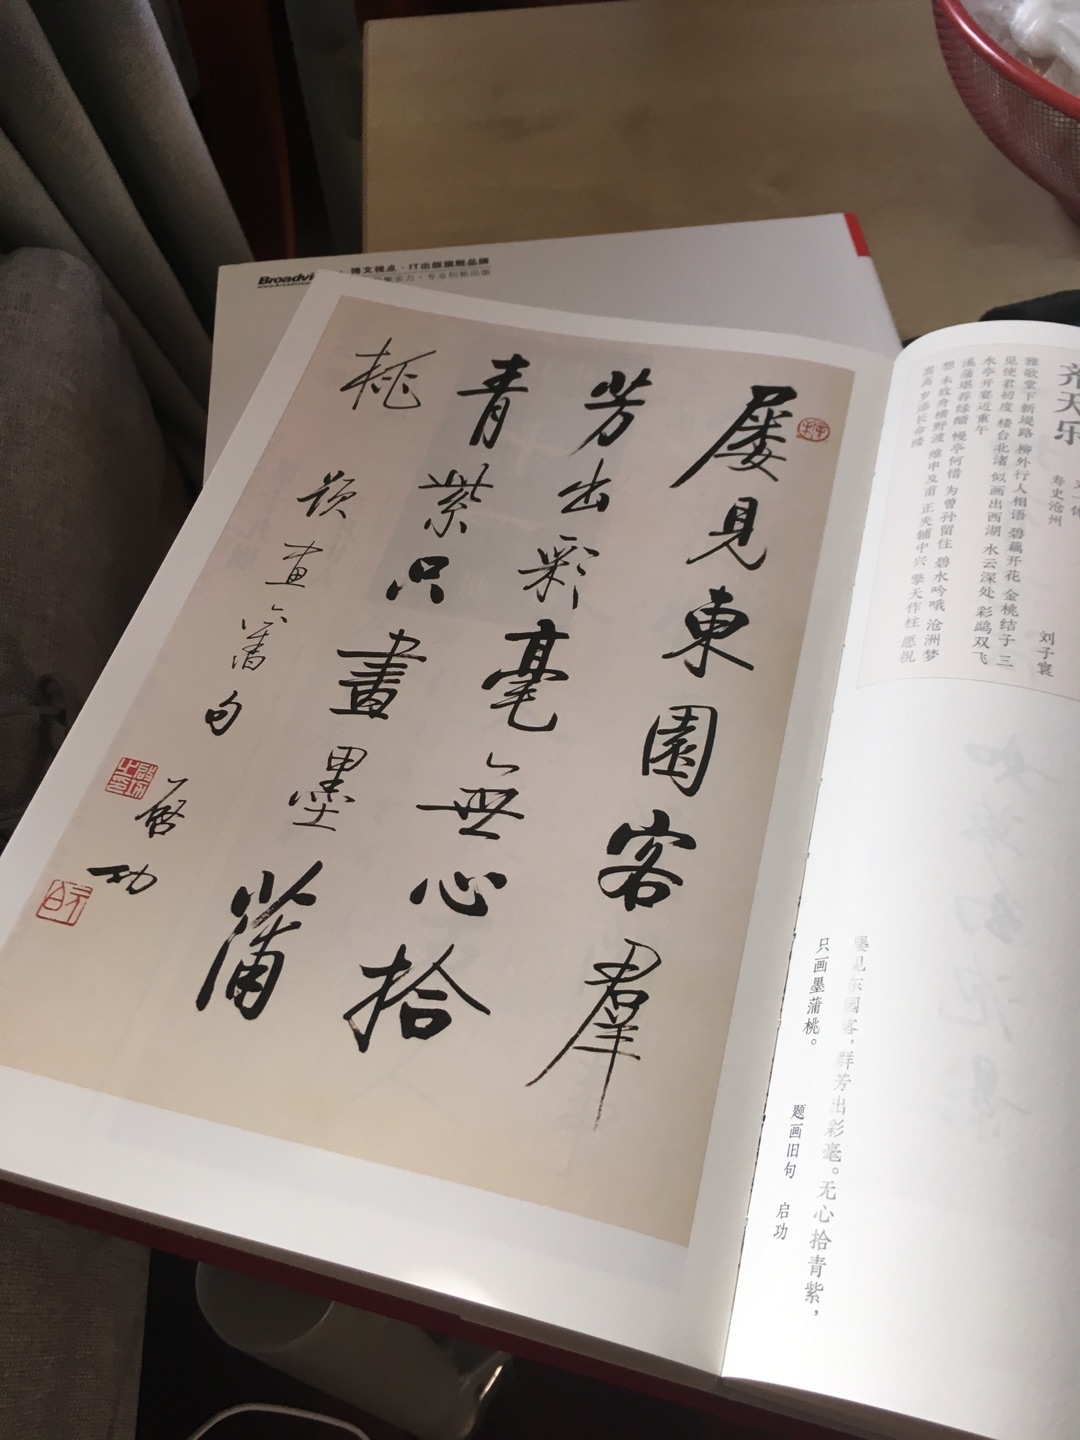 屡見東園客羣
芳出彩毫無心拾
青紫只畫墨蒲
桃
题画旧句
啓功
屡见东园客，群芳出彩毫。无心拾青紫，
只画墨蒲桃。
题画旧句 启功
齐天乐
寿史沧州
刘子寰
雅歌堂下新堤路 柳外行人相语 碧藕开花 金桃结子 三
见使君初度 楼台北渚 似画出西湖 水云深处 彩鹢双飞
水亭开宴近重午
溪蒲堪荐绿醑 幔亭何惜 为曾孙留住 碧水吟哦 沧洲梦
想 未放舟横野渡 维申及甫 正夹辅中兴 擎天作柱 愿祝
嵩高 岁添长命缕
Broadvi
博文视点·IT出版旗舰品牌